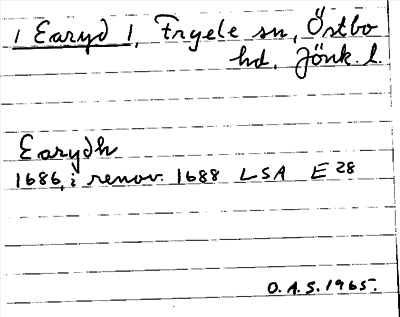 1 Earyd 1, Fryele sn, Östbo
hd, Jönk. l.
Earydh
1686, i renov. 1688 LSA E 28
O.A.S. 1965.